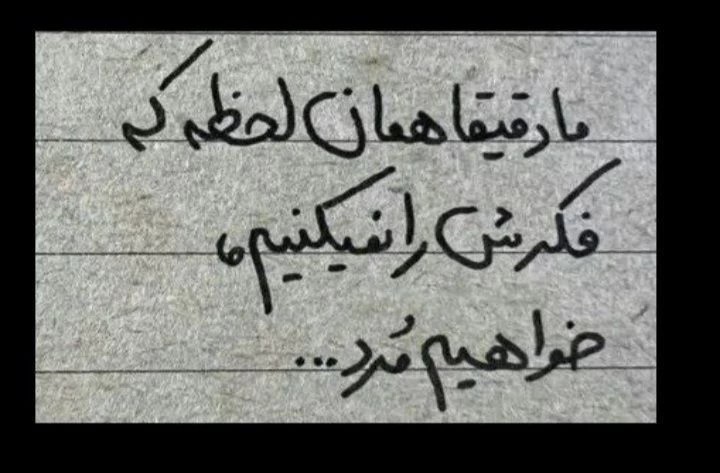 ما دقیقا همان لحظه که
فکرش را نمیکنیم،
خواهیم مُرد...